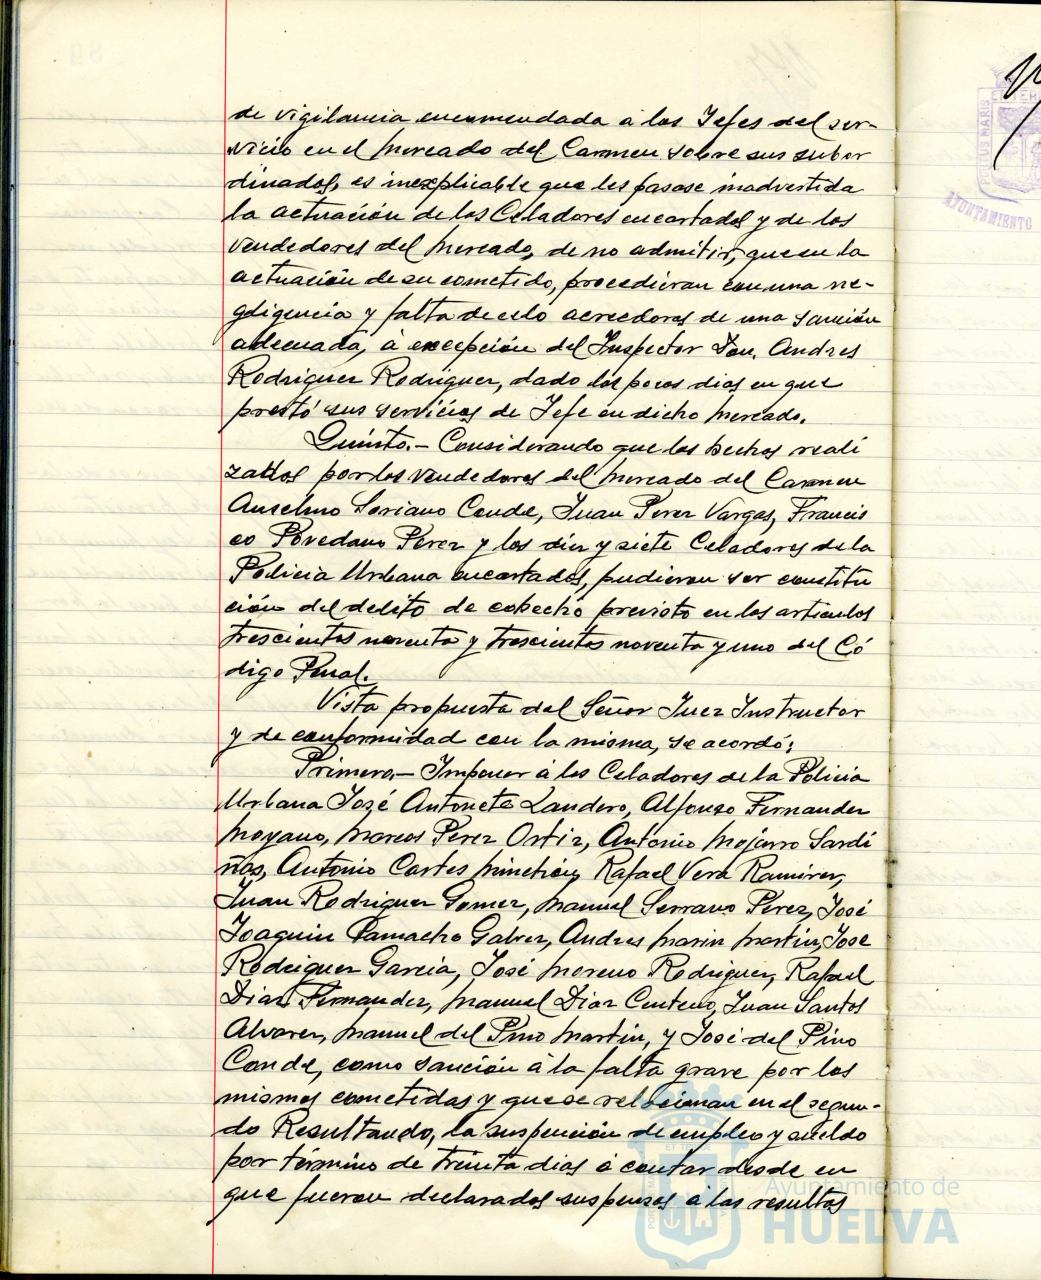 de vigilancia encomendada á los Jefes del ser-
vicio en el Mercado del Carmen sobre sus subor
dinados, es inexplicable que les pasase inadvertida
la actuación de los Celadores encartados y de los
vendedores del Mercado, de no admitir, que en la
actuación de su cometido, procedieran con una ne-
gligencia y falta de celo acreedoras de una sanción
adecuada, á excepción del Inspector Don Andres
Rodriguez Rodriguez, dado los pocos dias en que
prestó sus servicios de Jefe en dicho Mercado.
Quinto.- Considerando que los hechos reali
zados por los vendedores del Mercado del Carmen
Anselmo Soriano Conde, Juan Perez Vargas, Francis
co Povedano Perez y los diez y siete Celadores de la
Policia Urbana encartados, pudieran ser constitu
ción del delito de cohecho previsto en los articulos
trescientos noventa y trescientos noventa y uno del Có
digo Penal.
Vista propuesta del Señor Juez Instructor
y de conformidad con la misma, se acordó:
Primero.- Imponer á los Celadores de la Policia
Urbana José Antonete Landero, Alfonso Fernandez
Moyano, Marcos Perez Ortiz, Antonio Mojarro Sardi
ñas, Antonio Cortes Rafael Vera Ramirez,
Juan Rodriguez Gomez, Manuel Serrano Perez, José
Joaquin Camacho Galvez, Andres Marin Martin, Jose
Rodriguez Garcia, José Moreno Rodriguez, Rafael
Diaz Fernandez, Manuel Diaz Centeno, Juan Santos
Alvarez, Manuel del Pino Martin, y José del Pino
Conde, como sanción á la falta grave por los
mismos cometidas y que se relacionan en el segun-
do Resultando, la suspención de empleo y sueldo
por término de treinta dias á contar desde en
que fueron declarados suspensos á las resultas
PORTUS MARIS
AYUNTAMIENTO
Ayuntamiento de
HUELVA